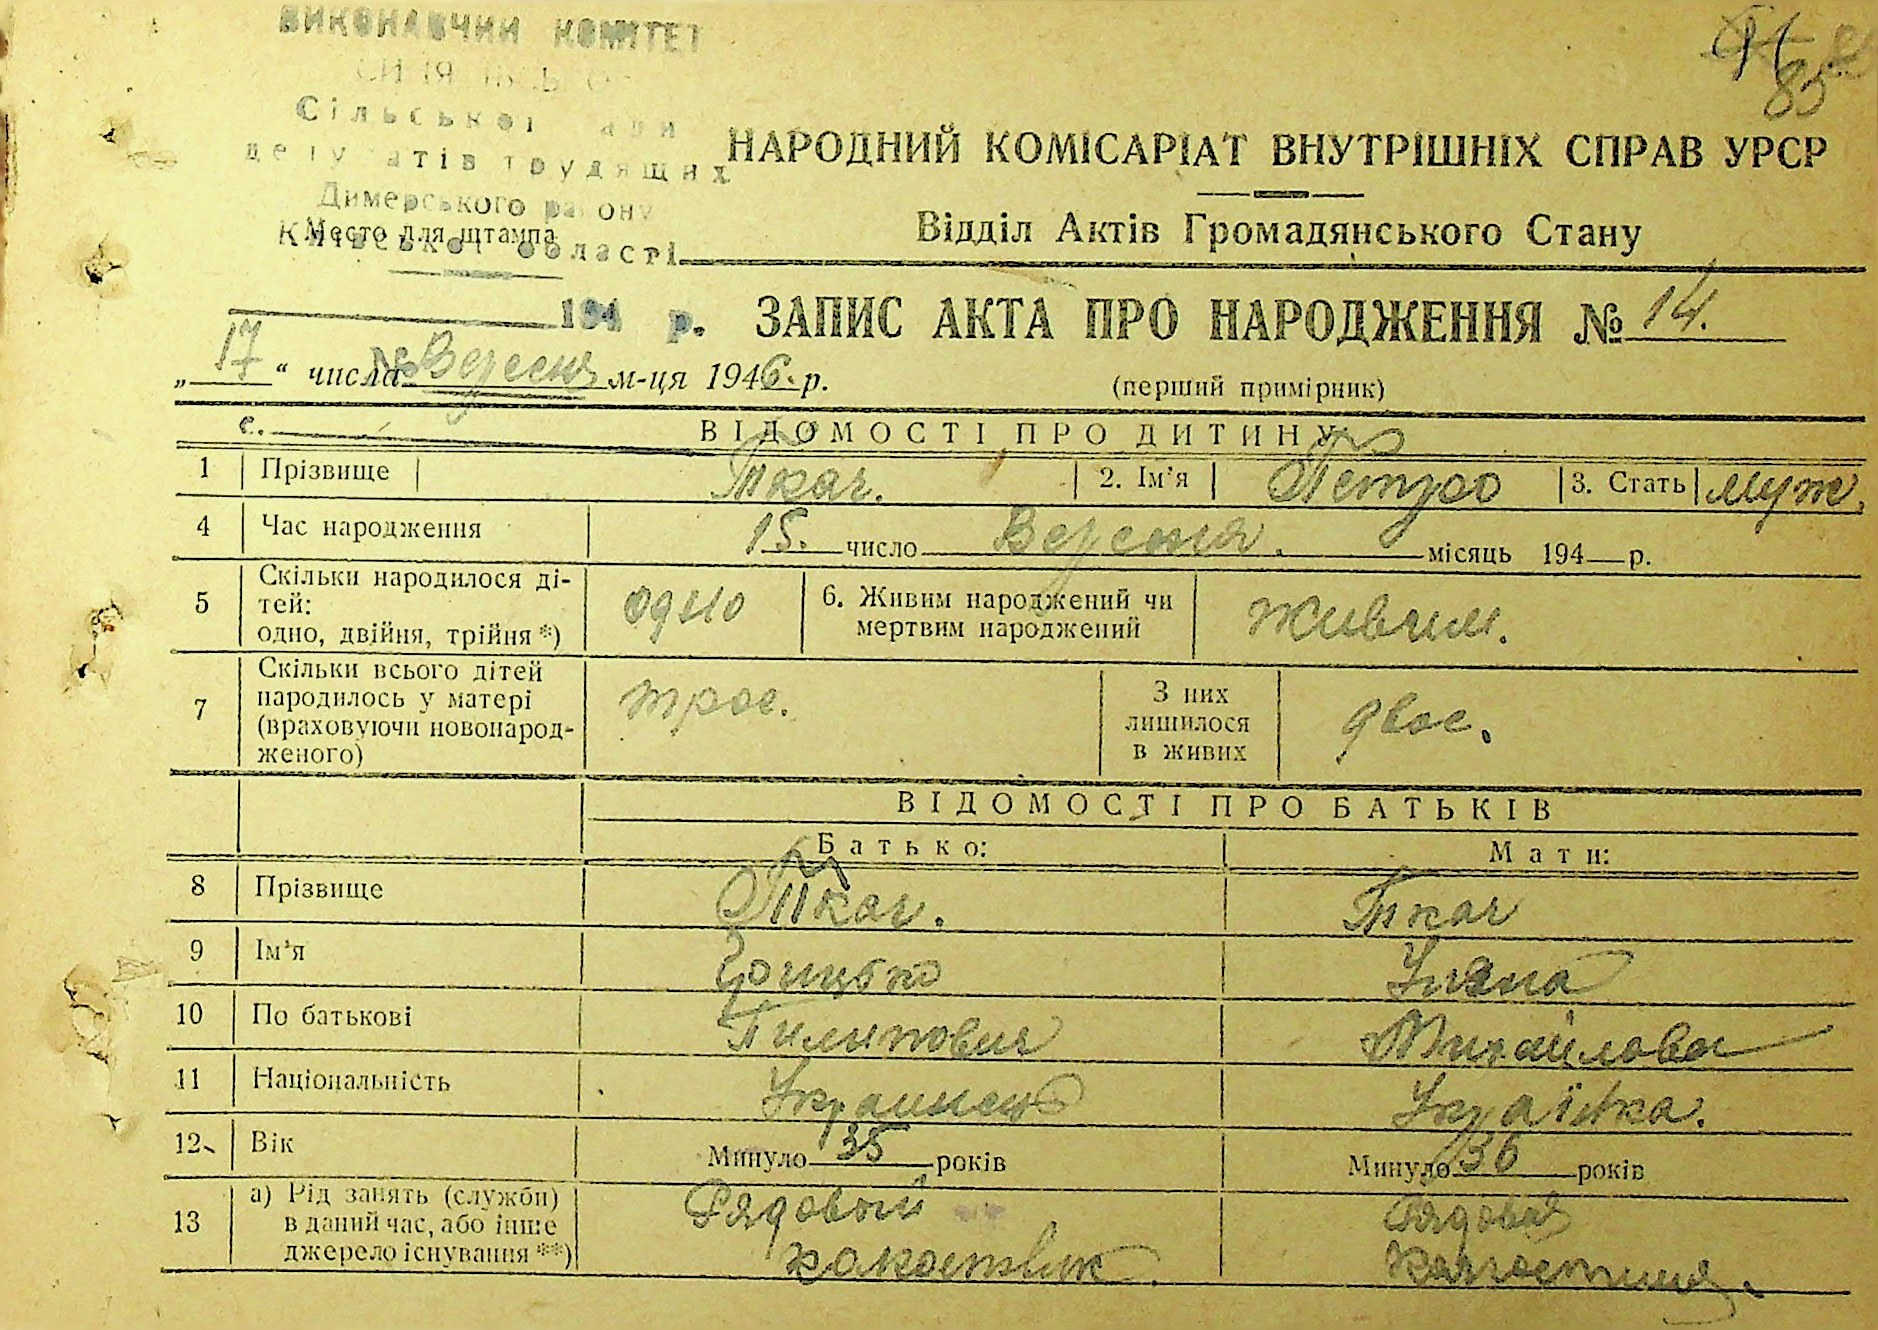 ВИКОНАВЧИЙ КОМІТЕТ
Сільської ради
депутатів трудящих
Димерського району
Київської області
Место для штампа
85
НАРОДНИЙ КОМІСАРІАТ ВНУТРІШНІХ СПРАВ УРСР
Відділ Актів Громадянського Стану
194 р. ЗАПИС АКТА ПРО НАРОДЖЕННЯ № 14.
„17“ числа Вересня м-ця 1946. р.
№
(перший примірник)
с.
ВІДОМОСТІ ПРО ДИТИНУ
1 Прізвище Ткач. 2. Ім'я Петро 3. Стать муж.
4 Час народження 15. число Вересня. місяць 194 р.
5 Скільки народилося ді-
тей:
одно, двійня, трійня *) одно 6. Живим народжений чи
мертвим народжений Живчим.
7 Скільки всього дітей
народилось у матері
(враховуючи новонарод-
женого) троє. З них
лишилося
в живих двоє.
ВІДОМОСТІ ПРО БАТЬКІВ
Батько: Мати:
8 Прізвище Ткач. Ткач
9 Ім'я Грицько Уляна
10 По батькові Пилипович Михайлова
11 Національність Украинець Українка.
12 Вік Минуло 35 років Минуло 36 років
13 а) Рід занять (служби)
в даний час, або інше
джерело існування **) Рядовый
колоспвик. Рядовая